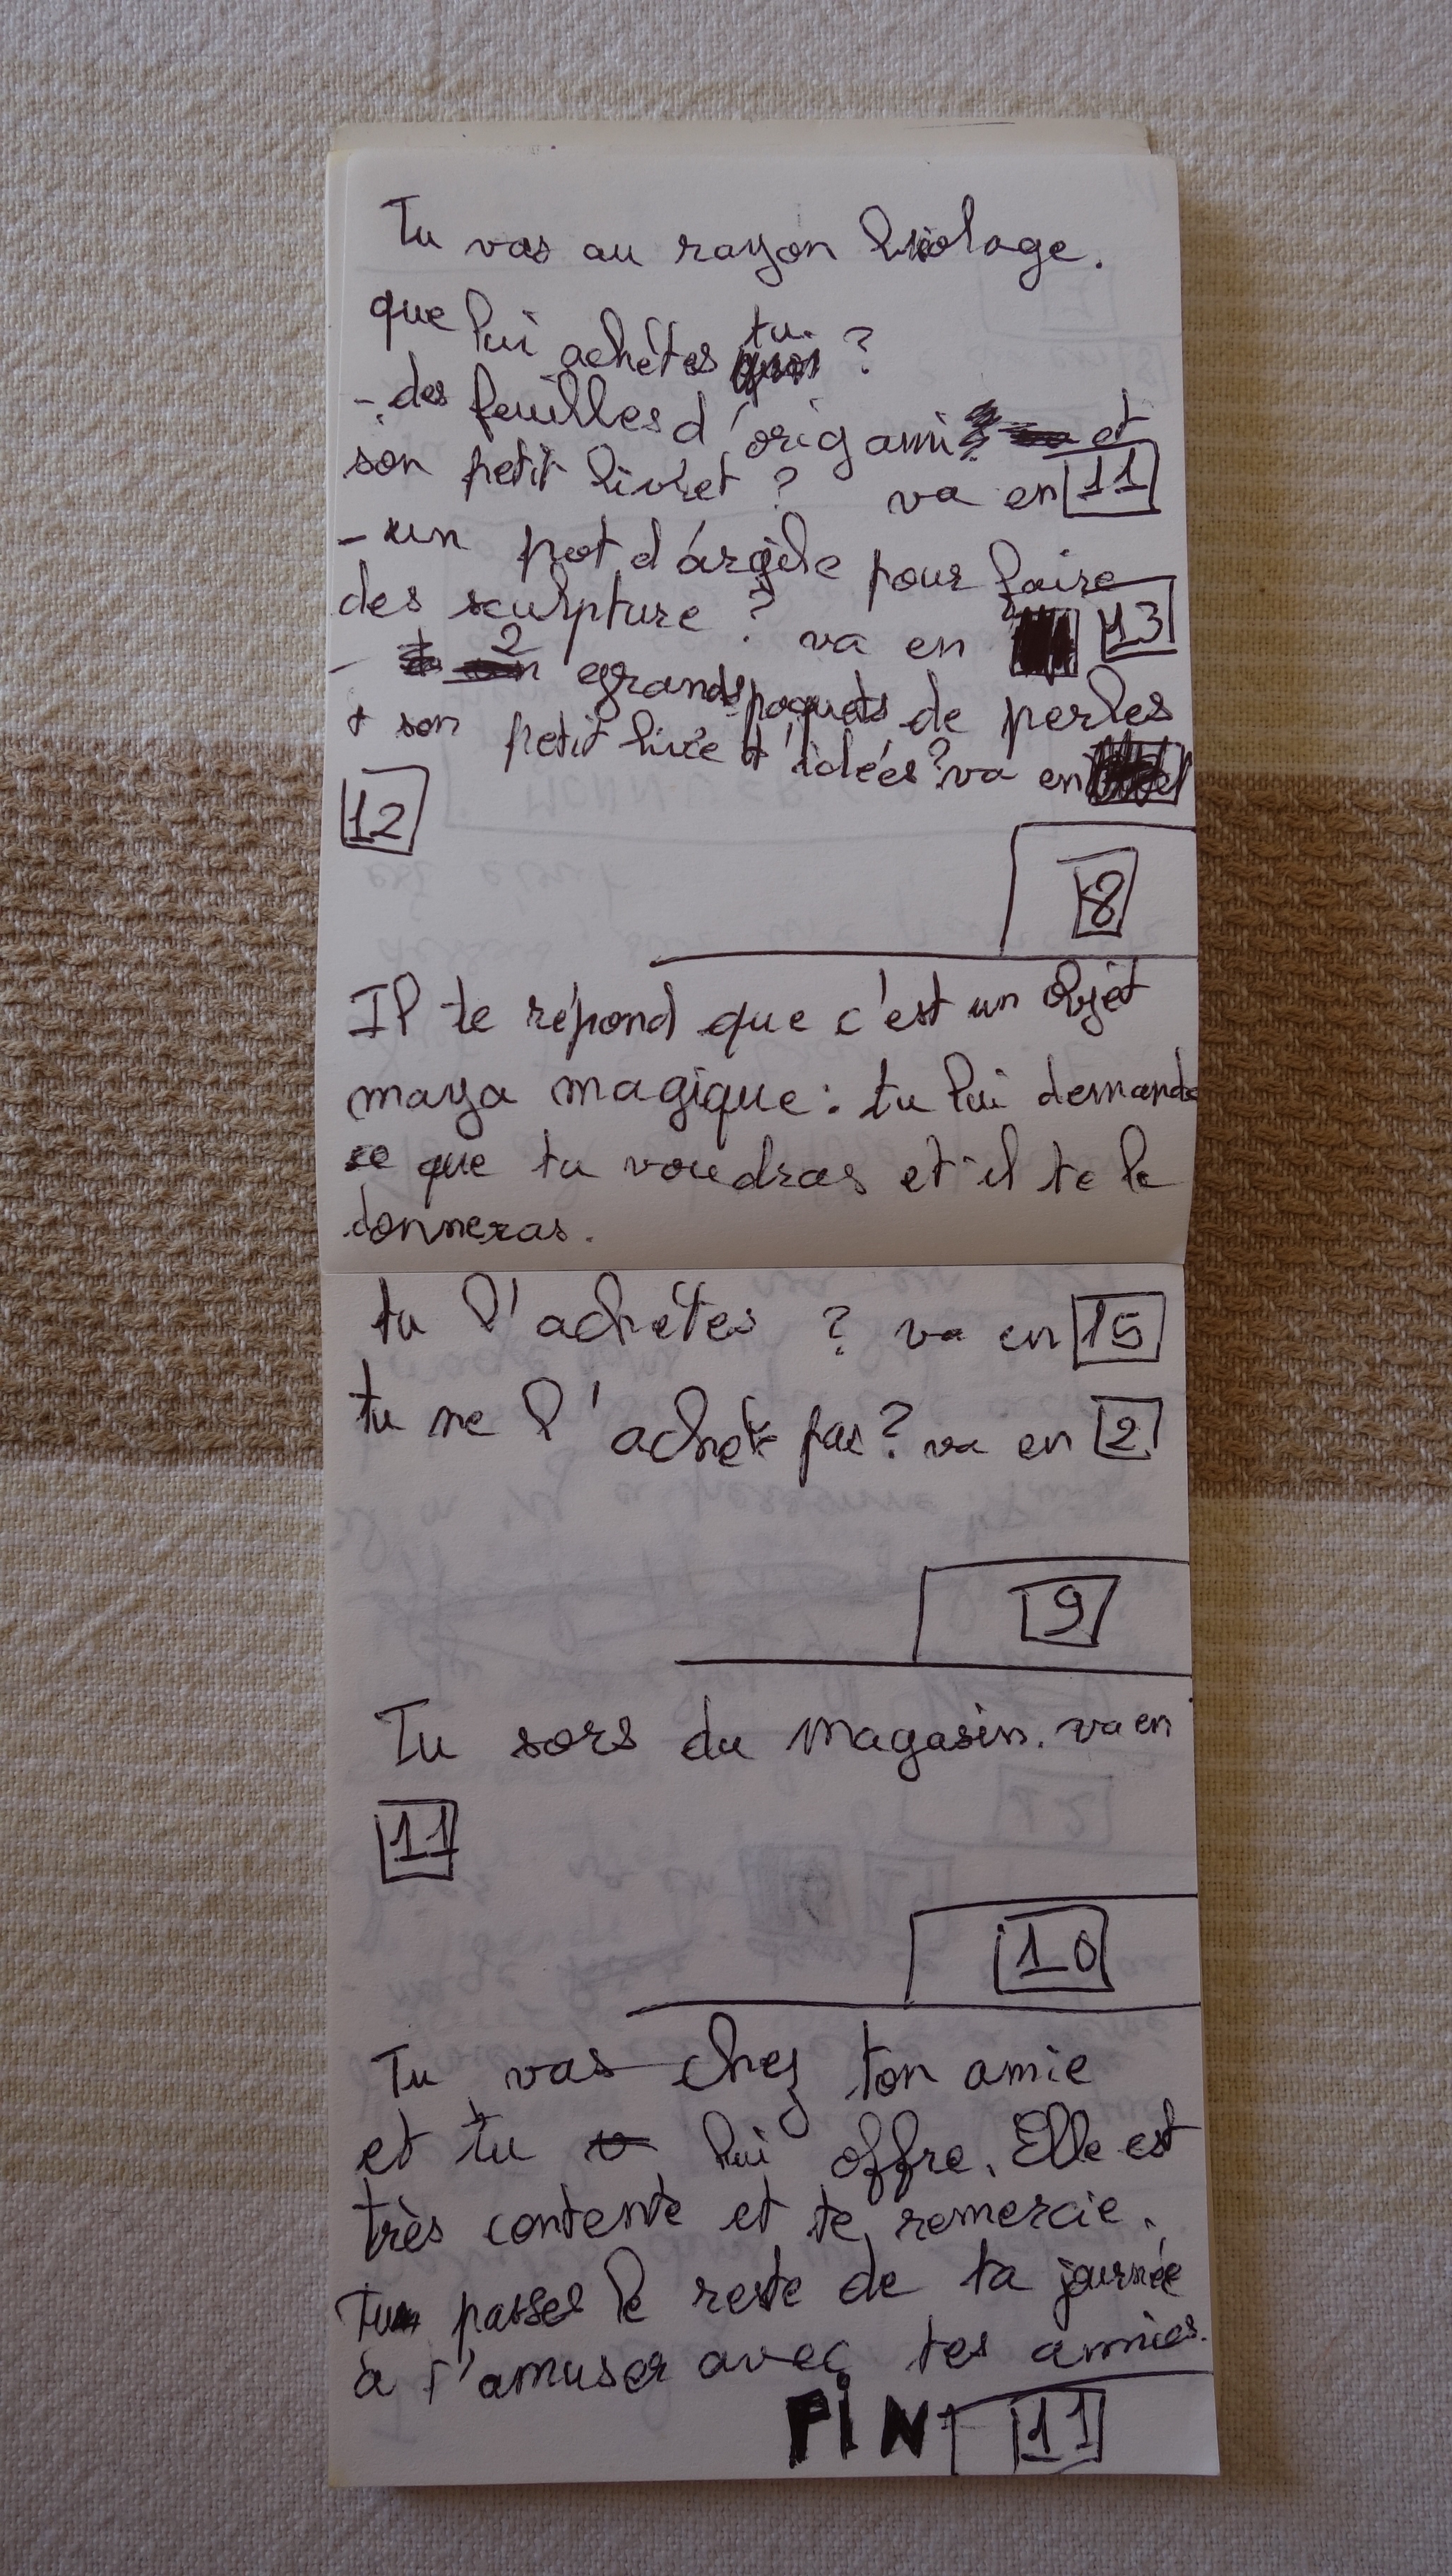 Tu vas au rayon briolage.
que lui achètes tu ?
- des feuilles d'origami et
son petit livret ? va en 11
- un pot d'argile pour faire
des sculpture ? va en 13
- 2 grands paquets de perles
+ son petit livre d'idées ? va en
12
8
Il te répond que c'est un objet
maya magique : tu lui demande
ce que tu voudras et il te le
donneras.
tu l'achètes ? va en 15
tu ne l'achete pas ? va en 2
9
Tu sors du magasin. va en
11
10
Tu vas chez ton amie
et tu lui offre. Elle est
très contente et te remercie.
Tu passes le reste de ta journée
à t'amuser avec tes amies.
FIN 11